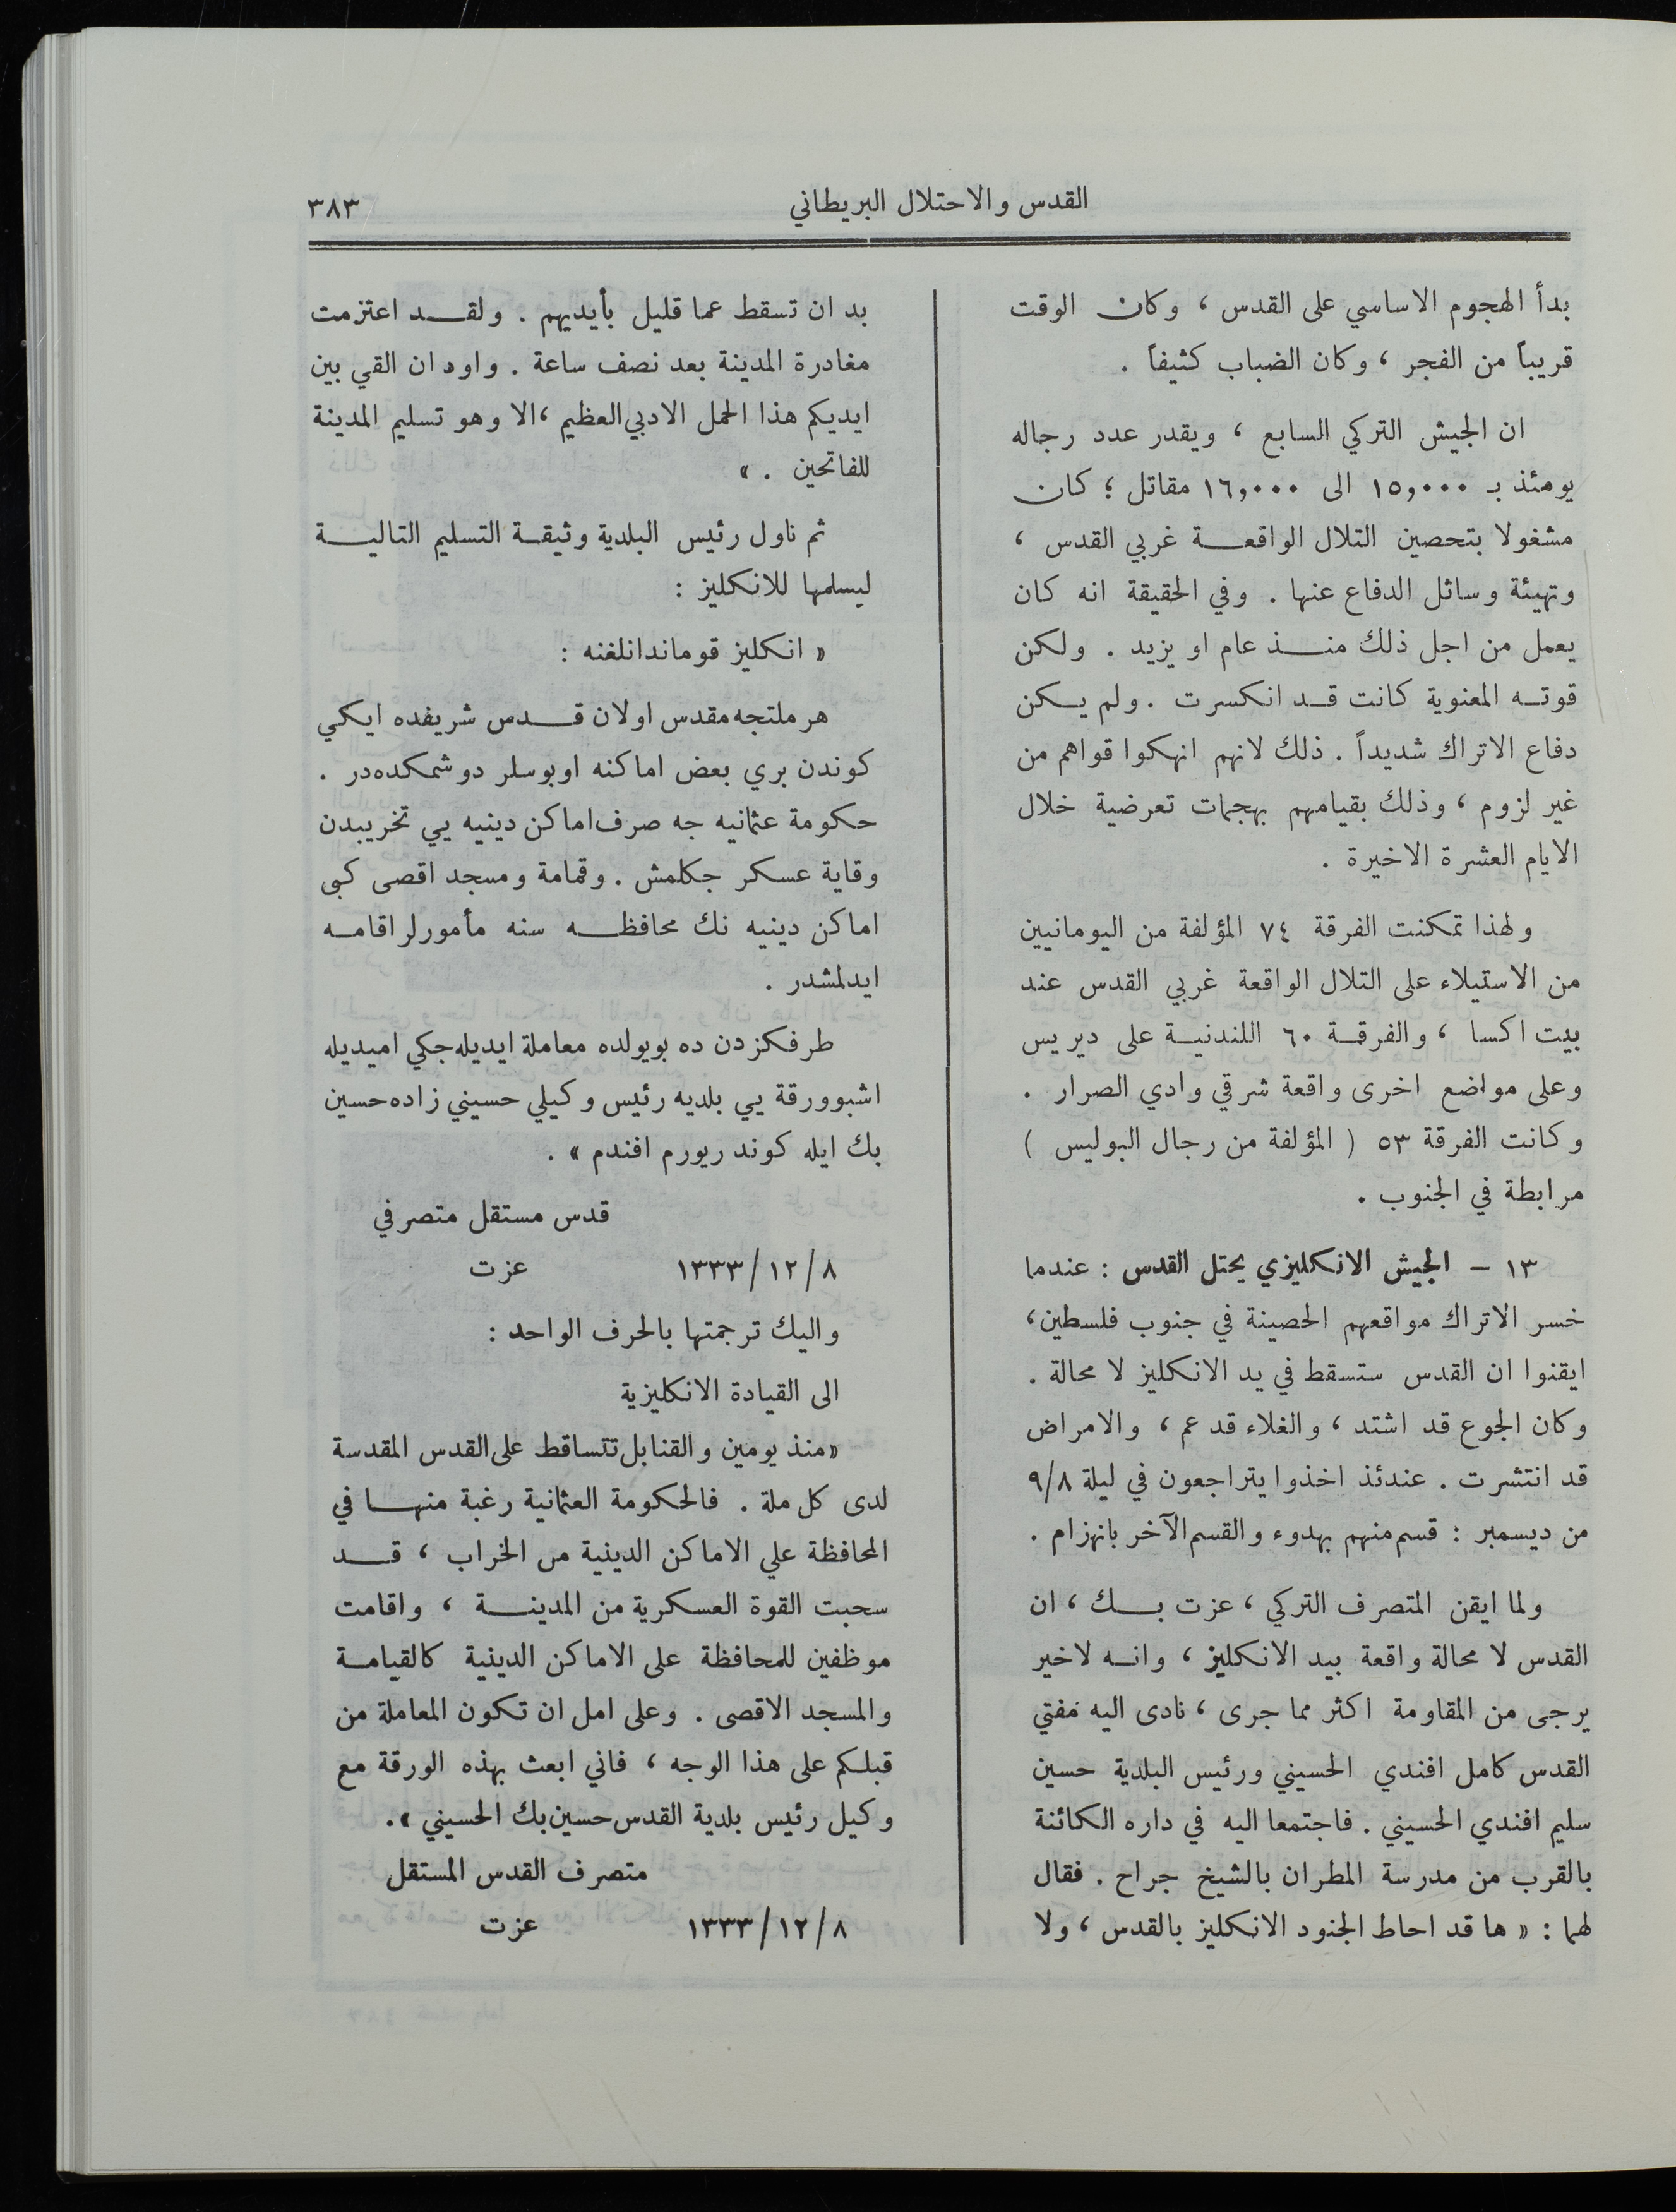 القدس والاحتلال البريطاني
٣٨٣
بدأ الهجوم الاساسي على القدس ، وكان الوقت
قريباً من الفجر ، وكان الضباب كثيفاً .
ان الجيش التركي السابع ، ويقدر عدد رجاله
يومئذ بـ ١٥,٠٠٠ الى ١٦,٠٠٠ مقاتل ؛ كان
مشغولا بتحصين التلال الواقعة غربي القدس ،
وتهيئة وسائل الدفاع عنها . وفي الحقيقة انه كان
يعمل من اجل ذلك منذ عام او يزيد . ولكن
قوته المعنوية كانت قد انكسرت . ولم يكن
دفاع الاتراك شديداً . ذلك لانهم انهكوا قواهم من
غير لزوم ، وذلك بقيامهم بهجمات تعرضية خلال
الايام العشرة الاخيرة .
ولهذا تمكنت الفرقة ٧٤ المؤلفة من اليومانيين
من الاستيلاء على التلال الواقعة غربي القدس عند
بيت اكسا ، والفرقة ٦٠ اللندنية على دير يس
وعلى مواضع اخرى واقعة شرقي وادي الصرار .
وكانت الفرقة ٥٣ ( المؤلفة من رجال البوليس )
مرابطة في الجنوب .
١٣ – الجيش الانكليزي يحتل القدس : عندما
خسر الاتراك مواقعهم الحصينة في جنوب فلسطين،
ايقنوا ان القدس ستسقط في يد الانكليز لا محالة .
وكان الجوع قد اشتد ، والغلاء قد عم ، والامراض
قد انتشرت . عندئذ اخذوا يتراجعون في ليلة ٩/٨
من ديسمبر : قسم منهم بهدوء والقسم الآخر بانهزام .
ولما ايقن المتصرف التركي ، عزت بك ، ان
القدس لا محالة واقعة بيد الانكليز ، وانه لاخير
يرجى من المقاومة اكثر مما جرى ، نادى اليه مفتي
القدس كامل افندي الحسيني ورئيس البلدية حسين
سليم افندي الحسيني . فاجتمعا اليه في داره الكائنة
بالقرب من مدرسة المطران بالشيخ جراح . فقال
لهما : « ها قد احاط الجنود الانكليز بالقدس ، ولا
بد ان تسقط عما قليل بأيديهم . ولقد اعتزمت
مغادرة المدينة بعد نصف ساعة . واود ان القي بين
ايديكم هذا الحمل الادبي العظيم ،الا وهو تسليم المدينة
للفاتحين . »
ثم ناول رئيس البلدية وثيقة التسليم التالية
ليسلمها للانكليز :
« انكليز قوماندانلغنه :
هر ملتجه مقدس اولان قدس شريفده ايكي
كوندن بري بعض اماكنه اوبوسلر دوشمكده در .
حكومة عثمانيه جه صرف اماكن دينيه يي تخريبدن
وقاية عسكر جكلمش . وقمامة ومسجد اقصى كبى
اماكن دينيه نك محافظه سنه مأمورلر اقامه
ايدلمشدر .
طرفكزدن ده بويولده معاملة ايديله جكي اميديله
اشبوورقة يي بلديه رئيس وكيلي حسيني زاده حسين
بك ايله كوندريورم افندم » .
قدس مستقل متصرفي
١٣٣٣/١٢/٨ عزت
واليك ترجمتها بالحرف الواحد :
الى القيادة الانكليزية
«منذ يومين والقنابل تتساقط على القدس المقدسة
لدى كل ملة . فالحكومة العثمانية رغبة منها في
المحافظة علي الاماكن الدينية من الخراب ، قد
سحبت القوة العسكرية من المدينة ، واقامت
موظفين للمحافظة على الاماكن الدينية كالقيامة
والمسجد الاقصى . وعلى امل ان تكون المعاملة من
قبلكم على هذا الوجه ، فاني ابعث بهذه الورقة مع
وكيل رئيس بلدية القدس حسين بك الحسيني ».
متصرف القدس المستقل
١٣٣٣/١٢/٨ عزت